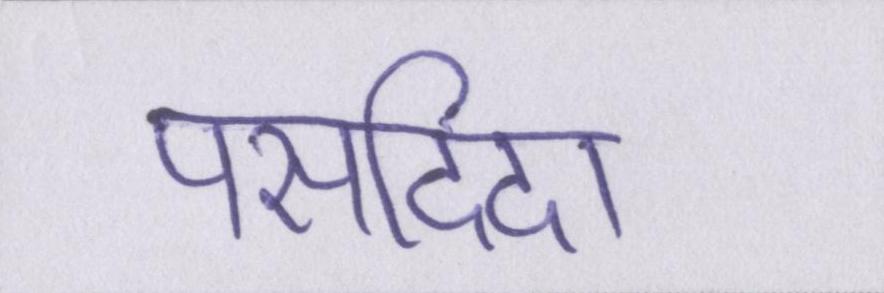 पसदिंदा